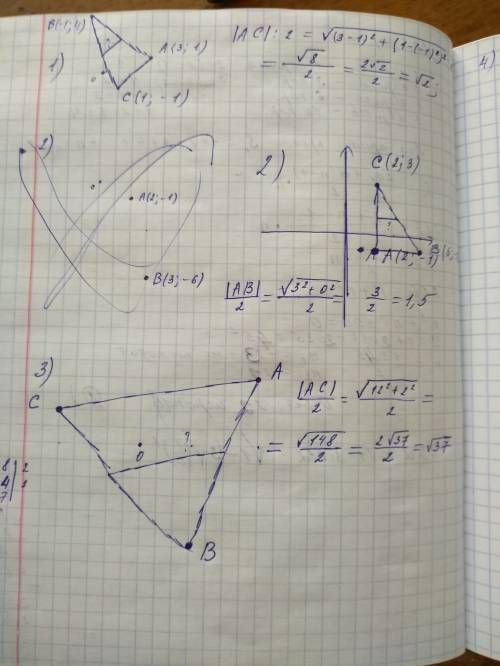 B(-1; 4)
1)
A(3; 1)
C(1; -1)
|AC| : 2 = √((3-1)² + (1-(-1))²)
= √8/2 = 2√2/2 = √2;
4)
2)
A(2; -1)
B(3; -6)
2)
C(2; 3)
?
A(2; -1)
|AB|/2 = √(3²+0²)/2 = 3/2 = 1,5
3)
A
C
O
?
B
|AC|/2 = √(12²+2²)/2 =
= √148/2 = 2√37/2 = √37
8 | 2
4
7